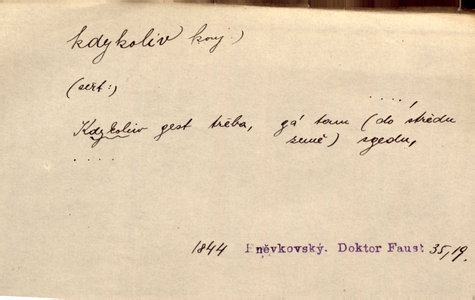 kdykoliv konj.)
(sętř:)
....,
Kdykoliv gest třeba, gá tam (do středu
země) sgedu,
....
1844 Hněvkovský. Doktor Faust 35,19.